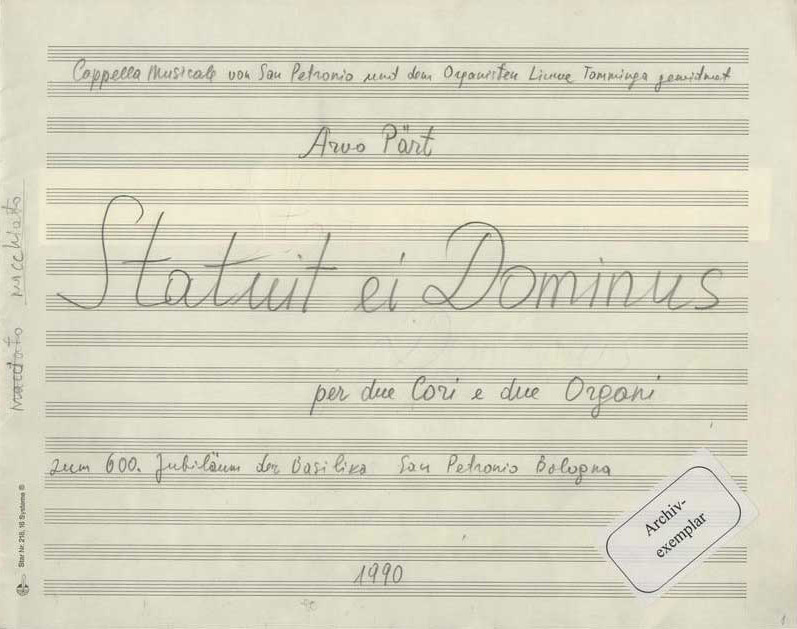 Cappella Musicale von San Petronio und dem Organisten Liuwe Tamminga gewidmet
Arvo Pärt
Statuit ei Dominus
per due Cori e due Organi
zum 600. Jubiläum der Basilika San Petronio Bologna
1990
Archiv-
exemplar
Star Nr. 218, 16 Systeme ®